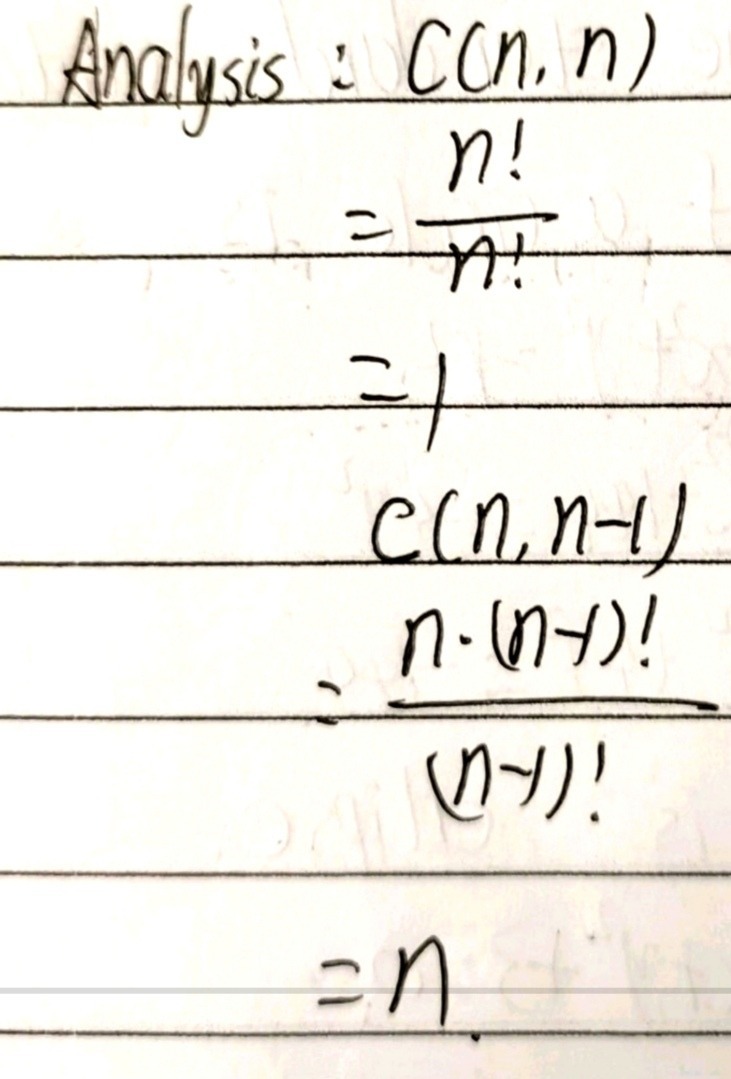 Analysis : C(n, n)
= n!/n!
= 1
C(n, n-1)
= n·(n-1)!/(n-1)!
= n.